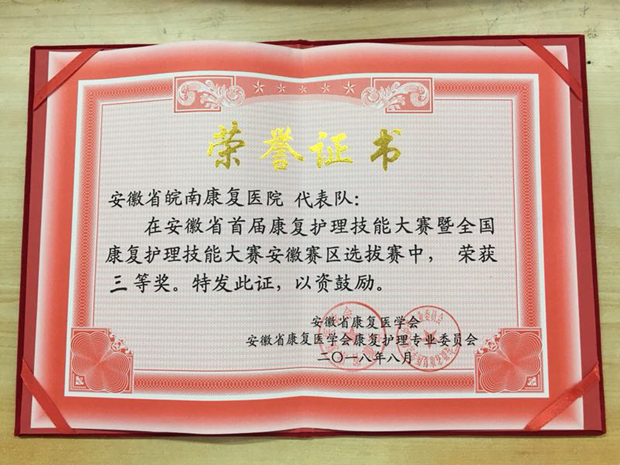 荣誉证书
安徽省皖南康复医院 代表队：
在安徽省首届康复护理技能大赛暨全国
康复护理技能大赛安徽赛区选拔赛中， 荣获
三等奖。特发此证，以资鼓励。
安徽省康复医学会
安徽省康复医学会康复护理专业委员会
二〇一八年八月